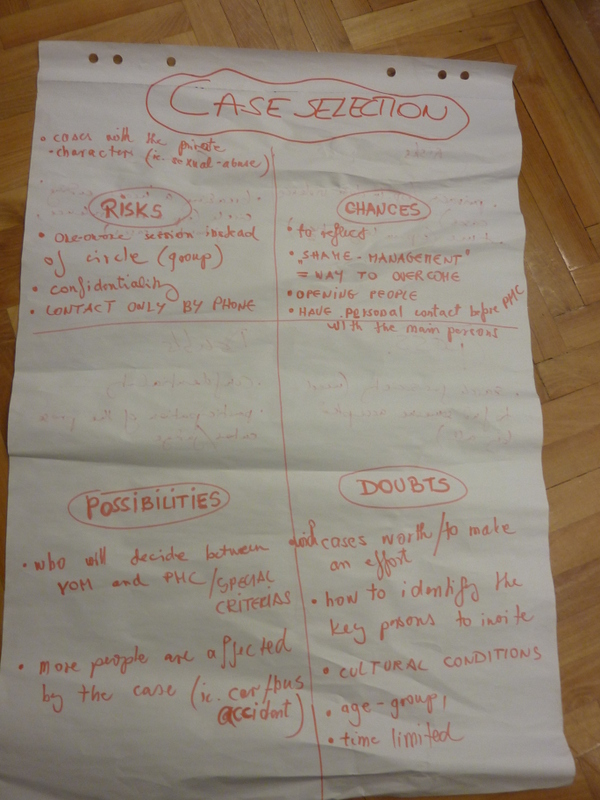 CASE SELECTION
• cases with the private
- characters (ie. sexual-abuse)
RISKS
• one-on-one session instead
of circle (group)
• confidentiality
• CONTACT ONLY BY PHONE
CHANCES
• to reflect
• „SHAME - MANAGEMENT"
= WAY TO OVERCOME
• OPENING PEOPLE
• HAVE PERSONAL contact before PMC
with the main persons
POSSIBILITIES
• who will decide between
VOM and PMC / SPECIAL
CRITERIAS
• more people are affected
by the case (ie. car/bus
accident)
DOUBTS
cases worth/to make
an effort
• how to identify the
key persons to invite
• CULTURAL CONDITIONS
• age-group,
• time limited